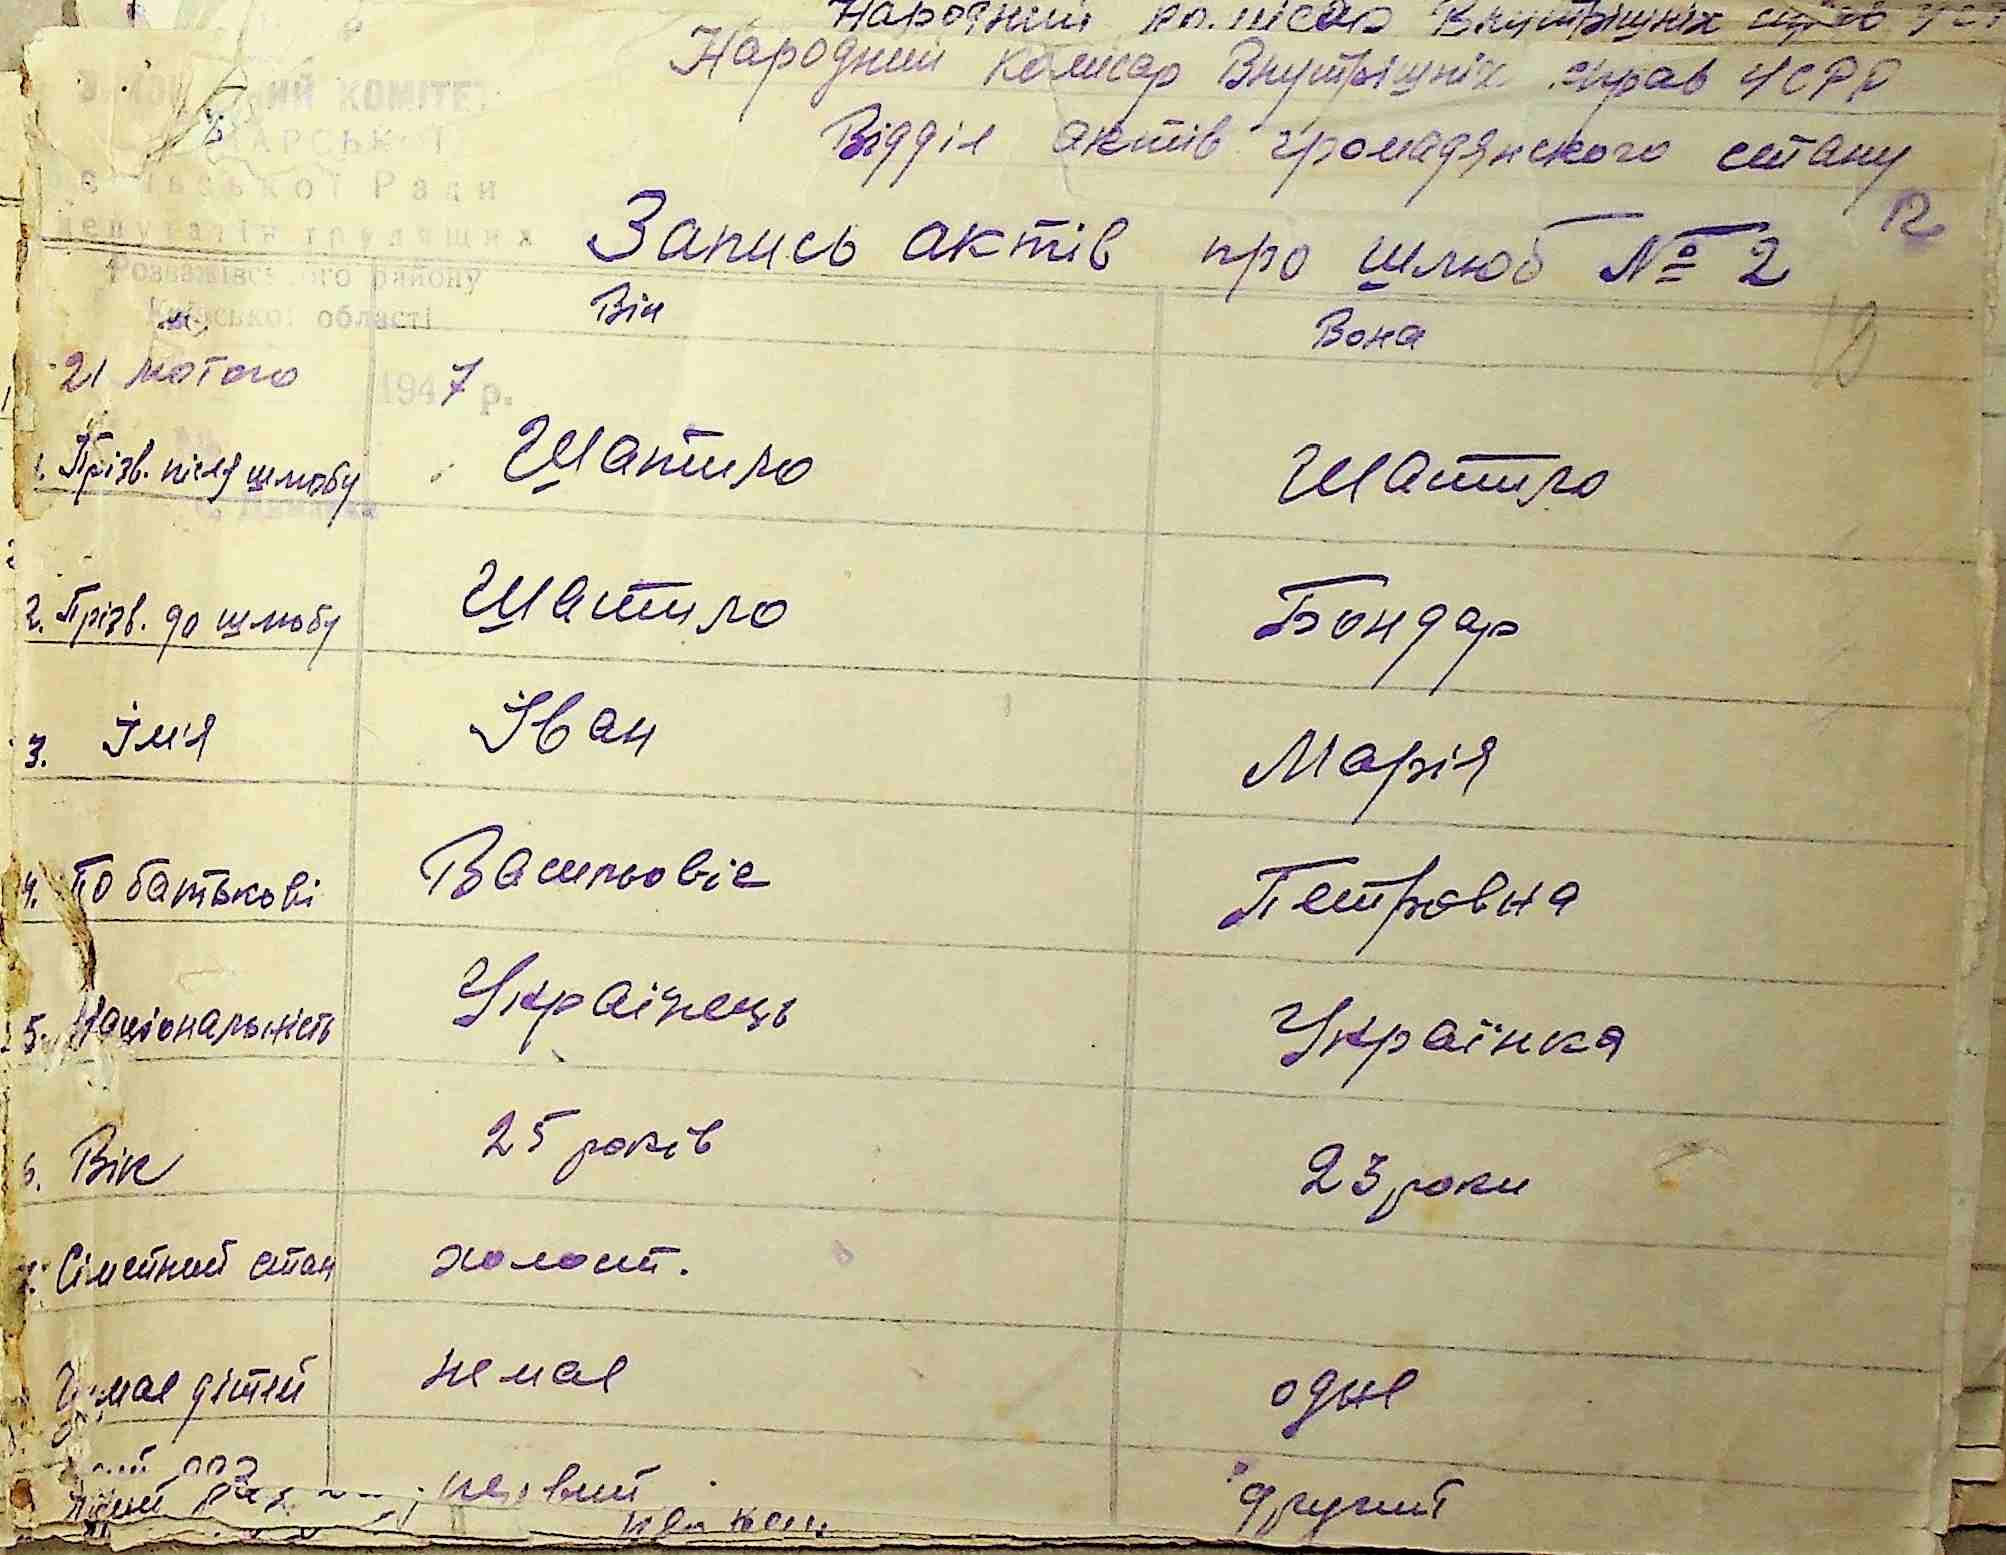 Народний комісар Внутрішніх справ
Народний комісар Внутрішніх справ УСРР
Відділ актів громадянского стану
12
КОМІТЕТ
Ради
депутатів трудящих
Розважівського району
Київської області
Запись актів про шлюб № 2
Він Вона
21 лютого 1947 р.
1. Прізв. після шлюбу Шатило Шатило
2. Прізв. до шлюбу Шатило Бондар
3. Імя Іван Марія
4. По батькові Васильовіч Петровна
5. Національність Українець Українка
6. Вік 25 років 23 роки
7. Сімейний стан холост.
має дітей немає одне
раз первий другий